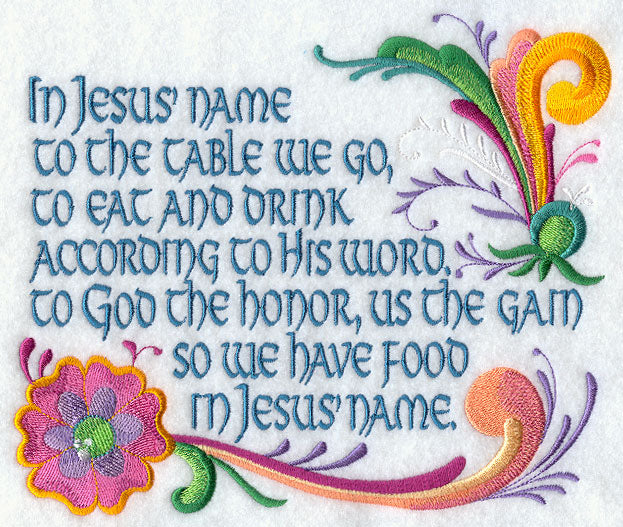 In Jesus' name
to the table we go,
to eat and drink
according to His word.
to God the honor, us the gain
so we have food
in Jesus' name.